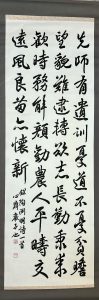 先師有遺訓憂道不憂貧瞻
望邈難逮轉欲志長勤秉耒
歡時務解顏勸農人平疇交
遠風良苗亦懷新
錄陶淵明詩一首